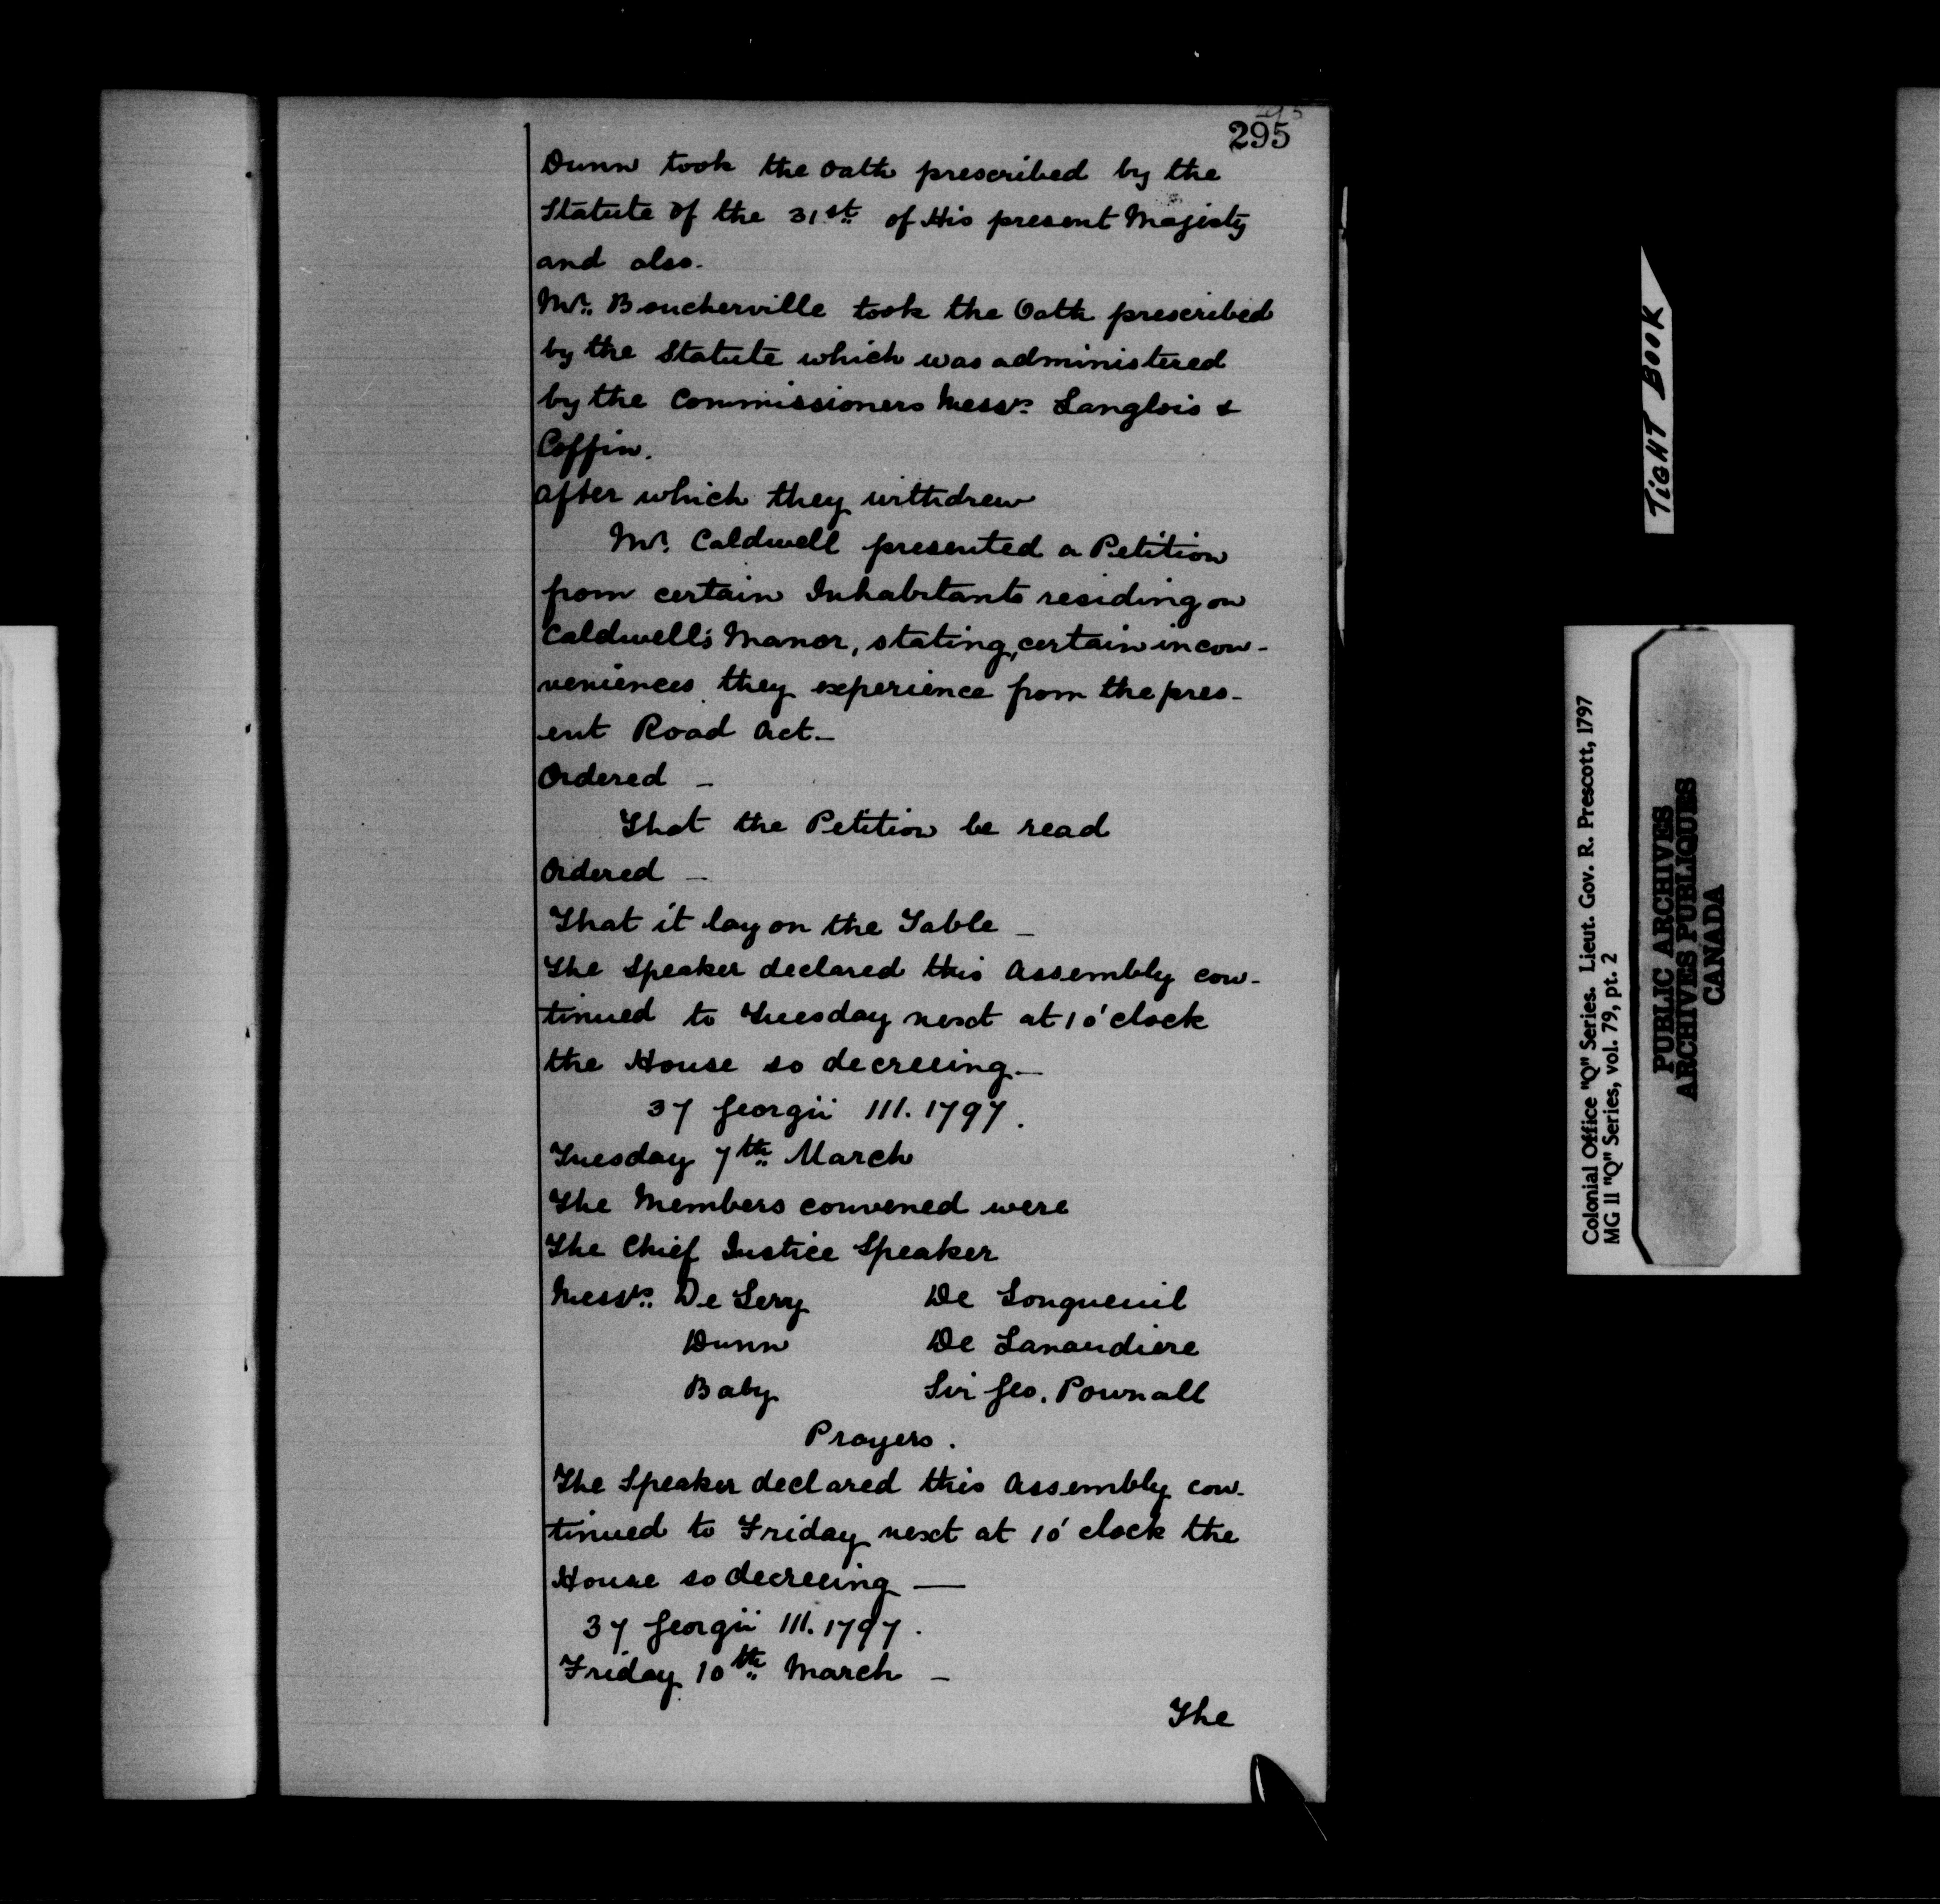 295
Dunn took the oath prescribed by the
Statute of the 31st of His present Majesty
and also.
Mr. Boucherville took the Oath prescribed
by the Statute which was administered
by the Commissioners Messrs. Langlois &
Coffin.
after which they withdrew
Mr. Caldwell presented a Petition
from certain Inhabitants residing on
Caldwell's Manor, stating, certain incon-
veniences they experience from the pres-
ent Road Act.—
Ordered —
That the Petition be read
Ordered —
That it lay on the Table —
The Speaker declared this Assembly con-
tinued to Tuesday next at 10'clock
the House so decreeing.—
37 Georgii III. 1797.
Tuesday 7th March
The Members convened were
The Chief Justice Speaker
Messrs. De Lery De Longueuil
Dunn De Lanaudiere
Baby Sir Geo. Pownall
Prayers.
The Speaker declared this Assembly con-
tinued to Friday next at 10'clock the
House so decreeing —
37 Georgii III. 1797.
Friday 10th March —
The
TIGHT BOOK
Colonial Office "Q" Series. Lieut. Gov. R. Prescott, 1797
MG 11 "Q" Series, vol. 79, pt. 2
PUBLIC ARCHIVES
ARCHIVES PUBLIQUES
CANADA